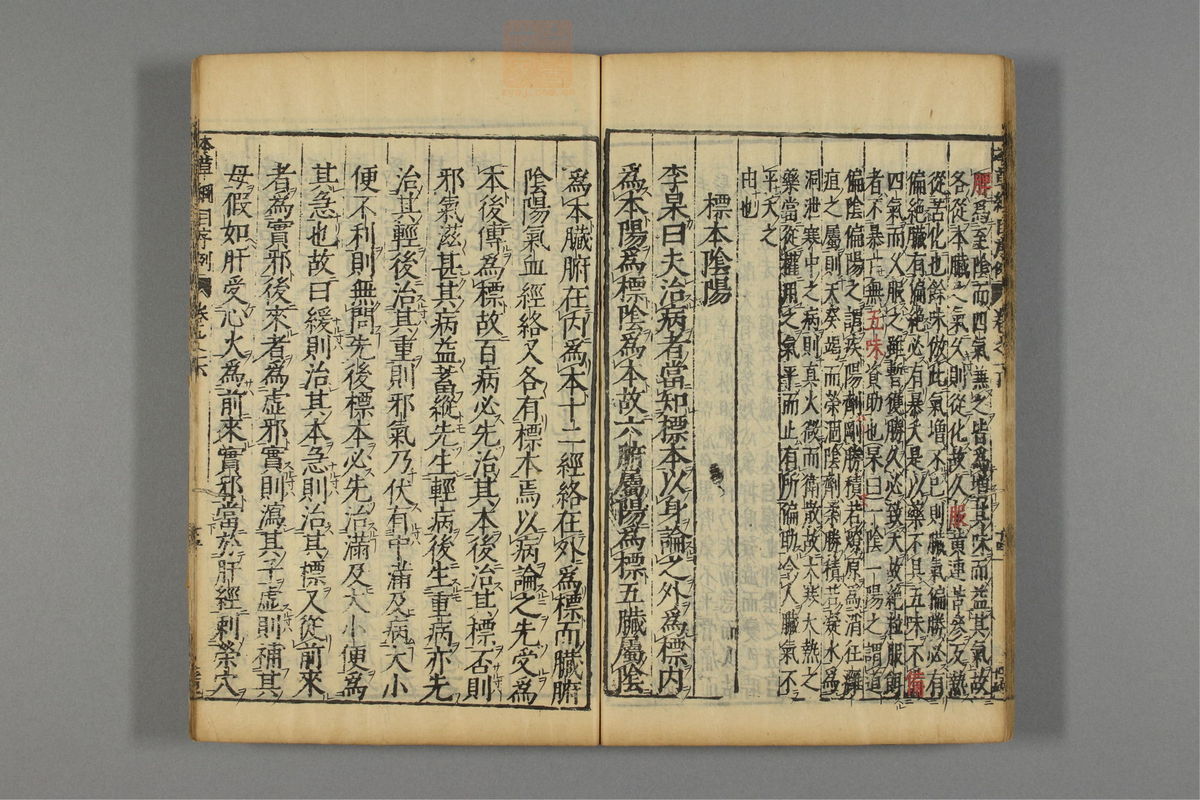 脾爲至陰而四氣兼之皆爲增其味而益其氣故
各從本臟之氣久則從化故久服黄連苦參反熱
從苦化也餘味倣此氣增不已則臟氣偏勝必有
偏絶臟有偏絶必有暴夭是以藥不具五味不備
四氣而久服之雖暫獲勝久必致夭故絶粒服餌
者不暴亡無五味資助也杲曰一陰一陽之謂道
偏陰偏陽之謂疾陽劑剛勝積若燎原爲消狂癰
疽之屬則天癸竭而榮涸陰劑柔勝積若凝水爲
洞泄寒中之病則真火微而衛散故大寒大熱之
藥當從權用之氣平而止有所偏助令人臟氣不
平夭之
由也
標本陰陽
李杲曰夫治病者當知標本以身論之外爲標内
爲本陽爲標陰爲本故六腑屬陽爲標五臟屬陰
爲本臟腑在内爲本十二經絡在外爲標而臟腑
陰陽氣血經絡又各有標本焉以病論之先受爲
本後傳爲標故百病必先治其本後治其標否則
邪氣滋甚其病益蓄縱先生輕病後生重病亦先
治其輕後治其重則邪氣乃伏有中滿及病大小
便不利則無問先後標本必先治滿及大小便爲
其急也故曰緩則治其本急則治其標又從前來
者爲實邪後來者爲虚邪實則瀉其子虚則補其
母假如肝受心火爲前來實邪當於肝經刺榮穴
本草綱目序例